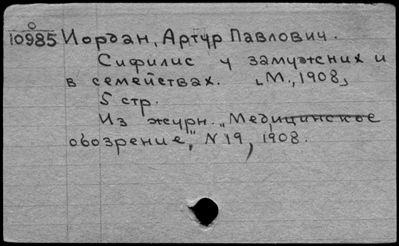 О
10985 Иордан, Артур Павлович.
Сифилис у замужних и
в семействах. [М., 1908]
5 стр.
Из журн. „Медицинское
обозрение", N 19, 1908.